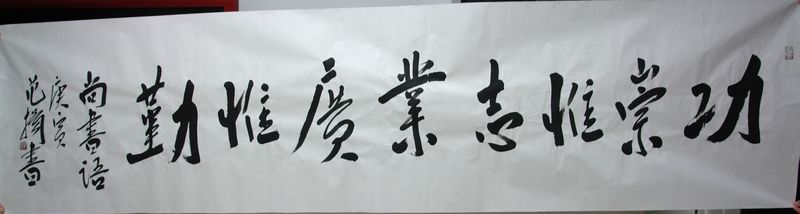 功崇惟志業廣惟勤
尚書语
庚寅
范揚書